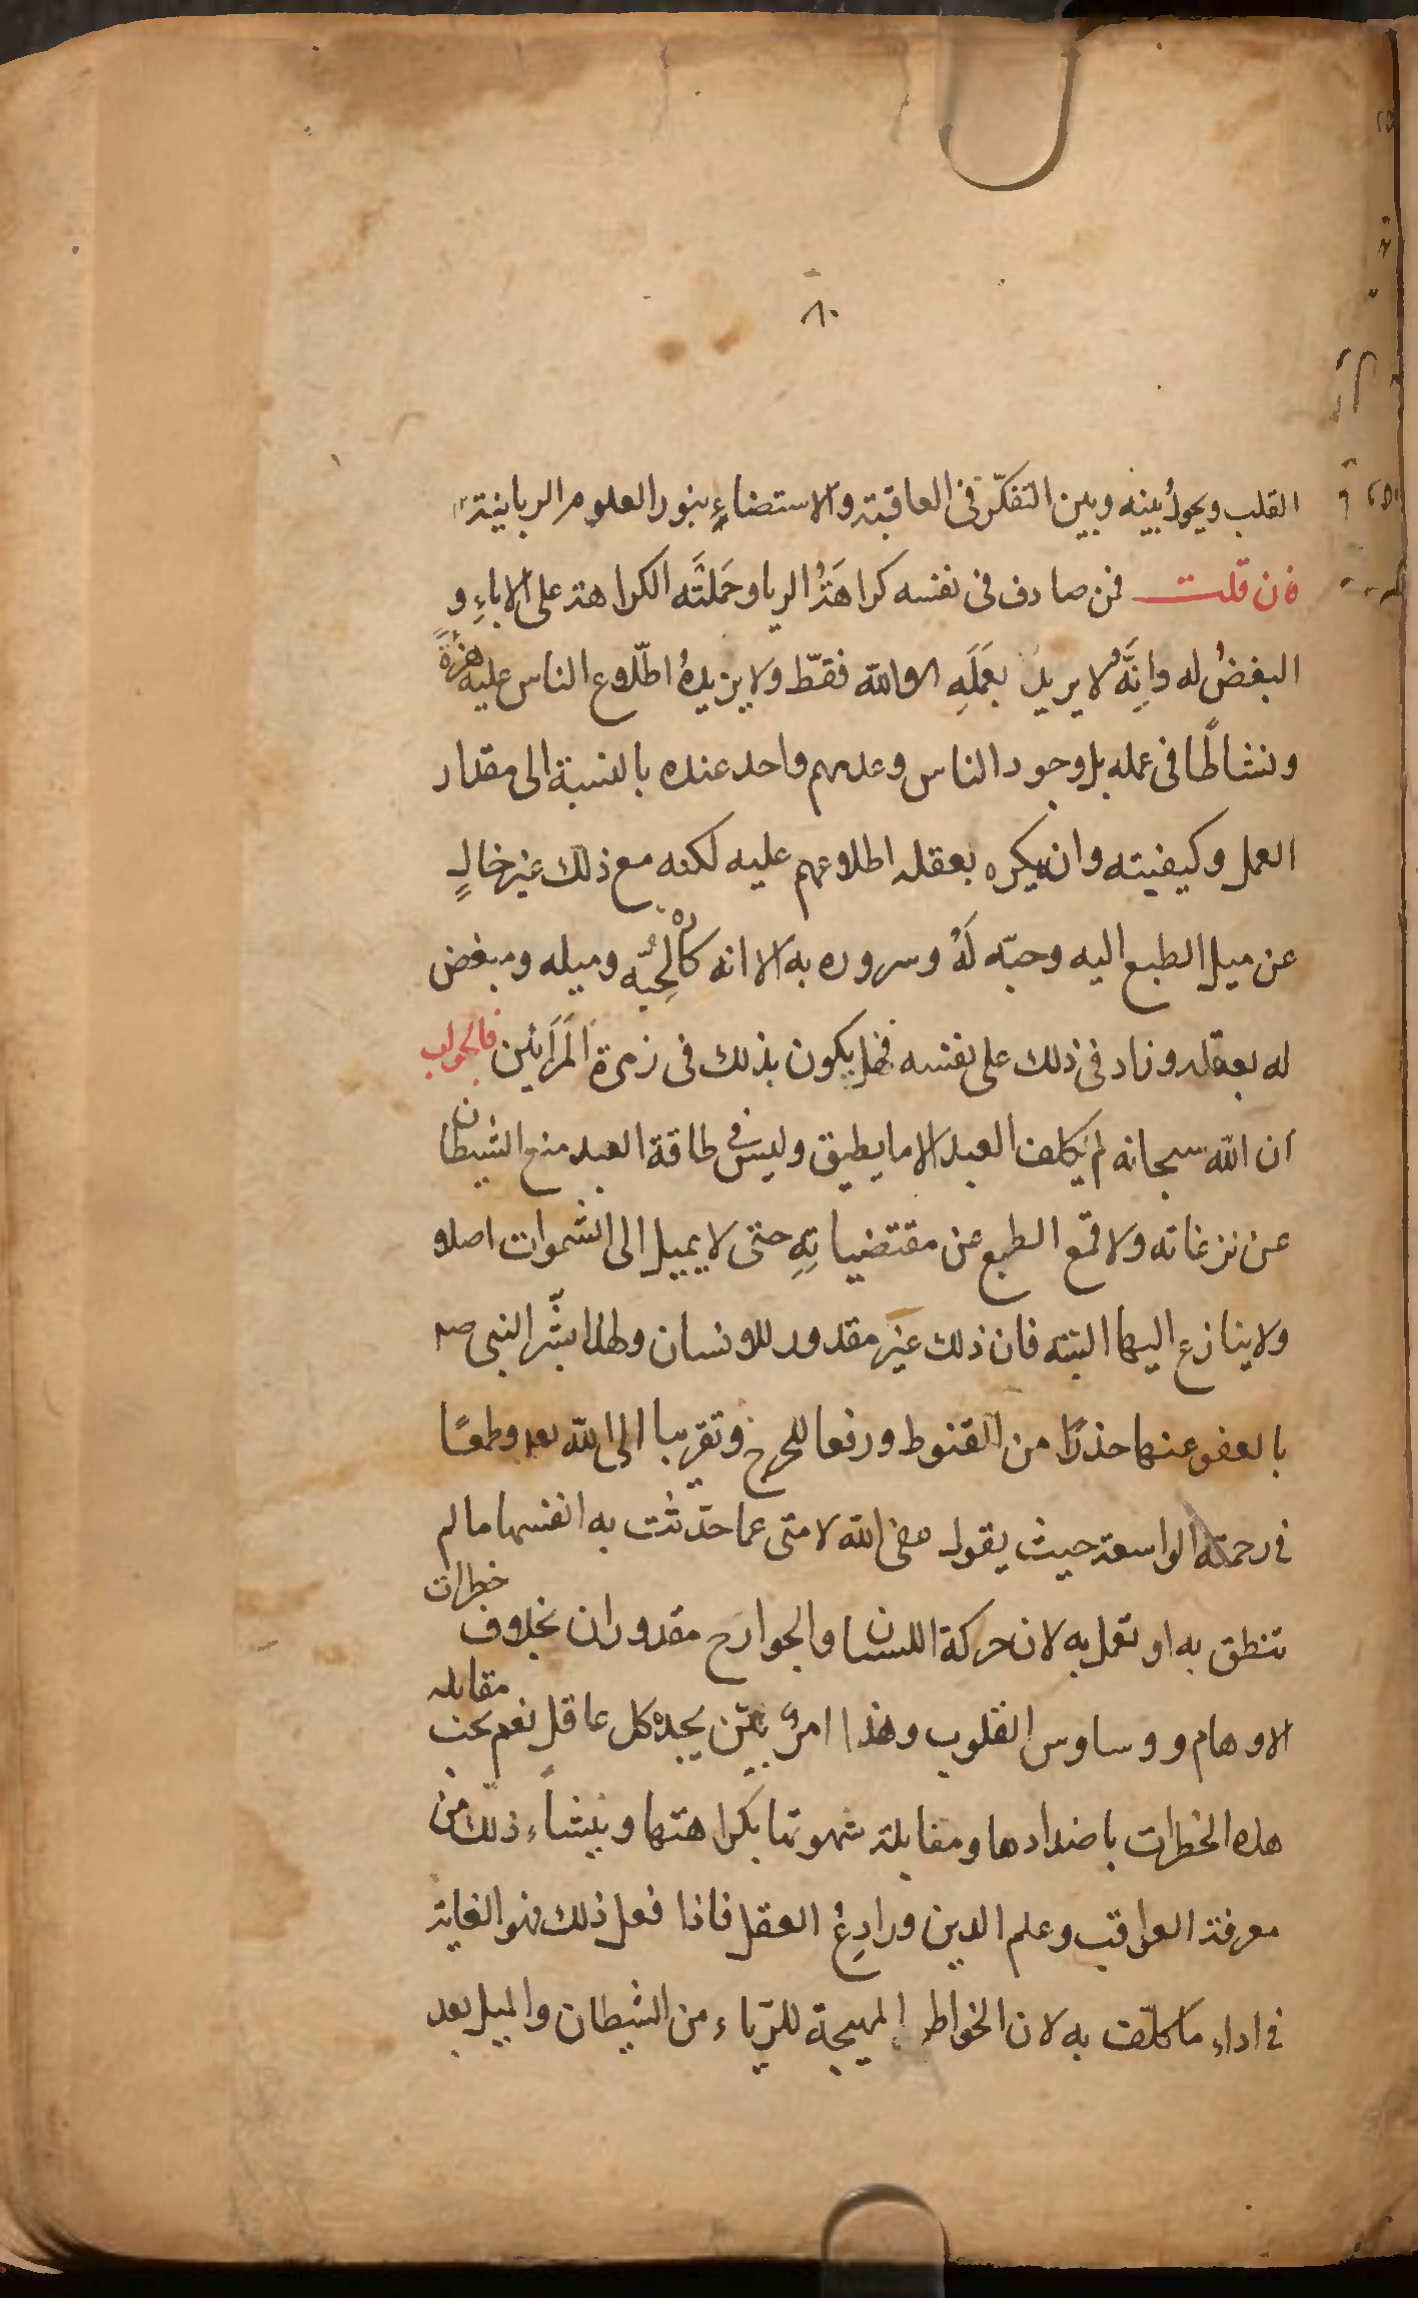 ٨٠
القلب ويحولُ بينه وبين التفكّر فى العاقبة والاستضاءِ بنور العلوم الربانية
فان قلت فمن صادف فى نفسه كراهَتُه الريا وحَملَتْه الكراهة على الاباءِ و
البغضُ له وانِّهُ لا يريد بعَمَلَهِ الا الله فقطّ ولا يزيدهُ اطّلاع الناس عليه هزةً
ونشاطًا فى عمله بل وجود الناس وعدمهم واحد عنده بالنسبة الى مقدار
العمل وكيفيته وان يكره بعقله اطلاعهم عليه لكنه مع ذلك غير خالٍ
عن ميل الطبع اليه وحبّه لَهُ وسروره به الا انه كارهٌ لِحُبّه وميله ومبغض
له بعقله وزاد فى ذلك على نفسه فهل يكون بذلك فى زمرة المُرائين فالجواب
ان الله سبحانه لم يكلف العبد الا ما يطيق وليس فى طاقة العبد منع الشيطان
عن نزغاته ولا قمع الطبع عن مقتضياتِهِ حتى لا يميل الى الشهوات اصلا و
ولا ينازع اليها البته فان ذلك غير مقدور للانسان ولهذا بشّر النبى صم
بالعفو عنها حذرًا من القنوط ورفعا للحرج وتقريبا الى الله وطمعًا
فى رحمته الواسعة حيث يقول عفى الله لامتى عما حدّثت به انفسها ما لم
تنطق به او تعمل به لان حركة اللسان والجوارح مقدوران بخلاف خطرات
الاوهام ووساوس القلوب وهذا امرٌ بيّن يجده كل عاقل نعم يجب مقابلة
هذه الخطرات باضدادها ومقابلة شهوتها بكراهتها وينشاء ذلك من
معرفة العواقب وعلم الدين ورادِعُ العقل فاذا فعل ذلك فهو الغاية
فى اداء ما كلّف به لان الخواطر المهيجة للرّياء من الشيطان والميل بعد